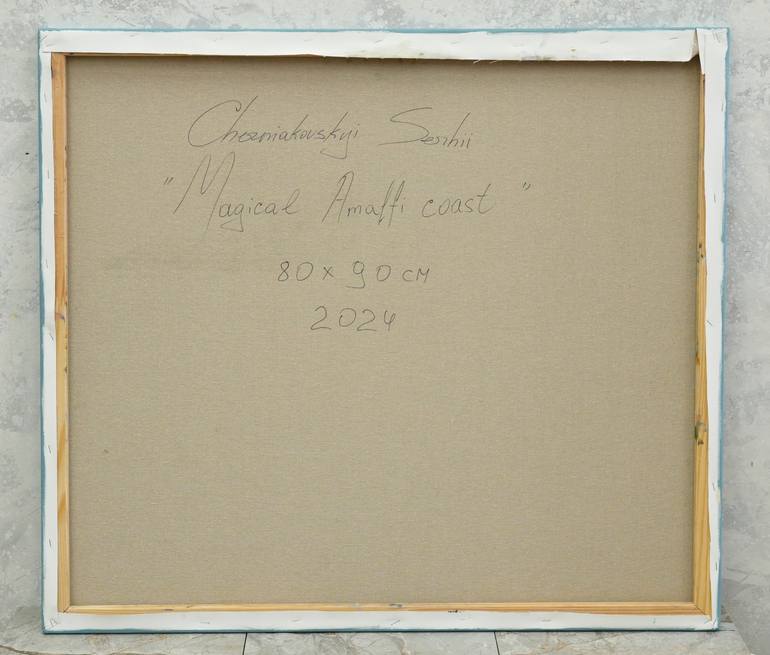 Cherniakovskyi Serhii
"Magical Amalfi coast"
80 x 90 см
2024